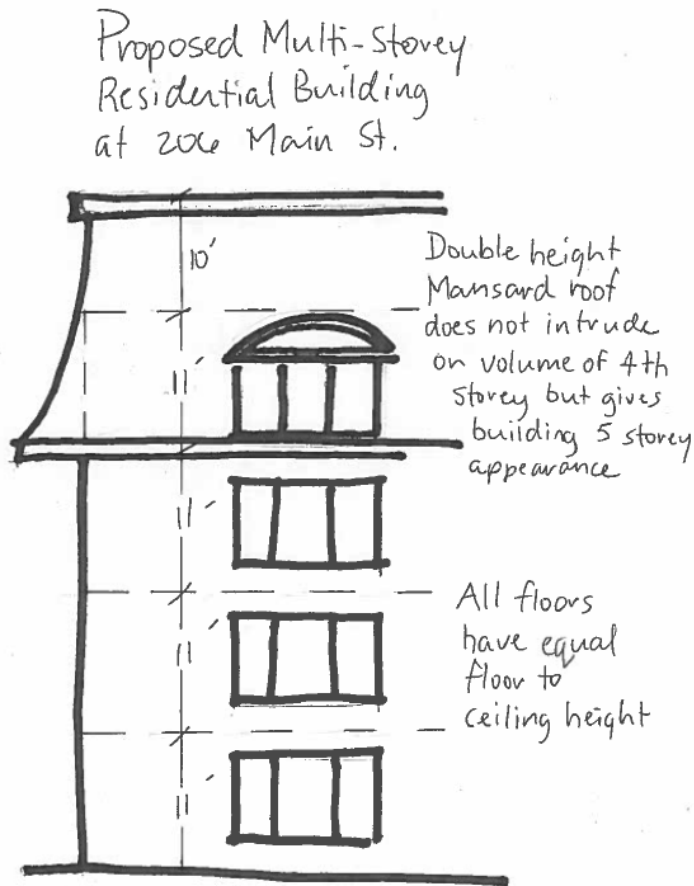 Proposed Multi-Storey
Residential Building
at 206 Main St.
10'
Double height
Mansard roof
does not intrude
on volume of 4th
storey but gives
building 5 storey
appearance
11'
11'
11'
11'
All floors
have equal
floor to
ceiling height